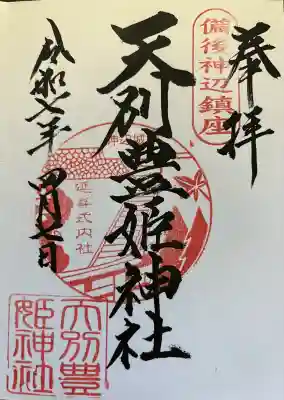 奉拝
備後神辺鎮座
天別豊姫神社
延喜式内社
令和七年 四月七日
天別豊
姫神社